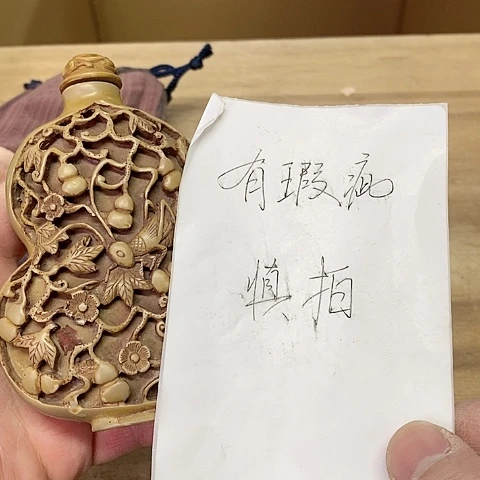 有瑕疵
慎拍